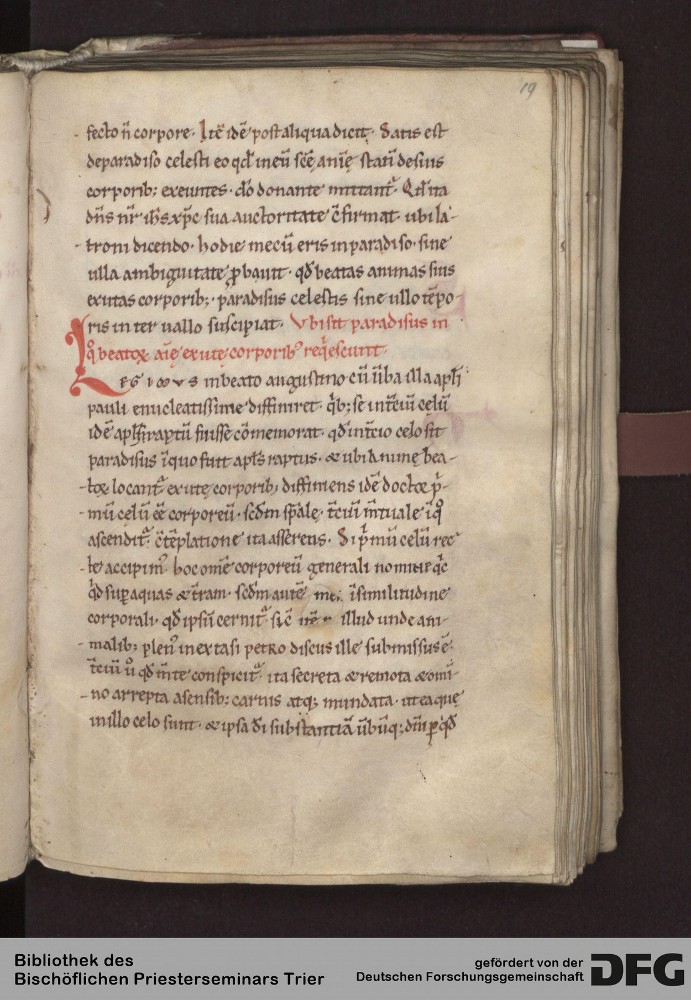 19
fecto n̄ corpore · Itē idē post aliqua dicit · Satis est
de paradiso celesti eo qd̄ in eū scē animę statū de suis
corporib; exeuntes · dō donante mittant᷑ · Qd̄ ita
dn̄s nr̄ ih̄s xp̄c sua auctoritate c̄firmat · ubi la-
troni dicendo · hodie mecū eris in paradiso · sine
ulla ambiguitate ꝓbauit · qd̄ beatas animas suis
exutas corporib; · paradisus celestis sine ullo tēpo-
ris inter uallo suscipiat · Vbi sit paradisus in
q̊ beatoꝝ aīę exutę corporib᷒ req̇escunt ·
LEGIMVS in beato augustino cū ūba illa apl̄i
pauli enucleatissime diffiniret · q̇b; se in t̄ciū celū
idē apl̄s raptū fuisse cōmemorat · qd̄ in t̄cio celo sit
paradisus ī quo fuit apl̄s raptus · & ubi animę bea-
toꝝ locant᷑ exutę corporib; diffiniens idē doctor p̄-
mū celū eē corporeū · scd̄m sp̄ale · t̄ciū m̄tuale ī q̊
ascendit᷑ · c̄tēplatione ita asserens · Si p̄mū celū rec-
te accipim᷒ hoc om̄e corporeū generali nomine q̇c
qd̄ sup̄ aquas & t̄ram · scd̄m autē ī similitudine
corporali · qd̄ ipsū cernit᷑ · sic̄ illud unde ani-
malib; plen᷒ in extasi petro discus ille submissus ē ·
t̄ciū ů qd̄ m̄te conspicit᷑ · ita secreta & remota & omī-
no arrepta a sensib; carnis atq; mundata · ut ea quę
in illo celo sunt · & ipsa dī substantiā ūbūq; dm̄ ꝑ qd̄
Bibliothek des
Bischöflichen Priesterseminars Trier
gefördert von der
Deutschen Forschungsgemeinschaft
DFG